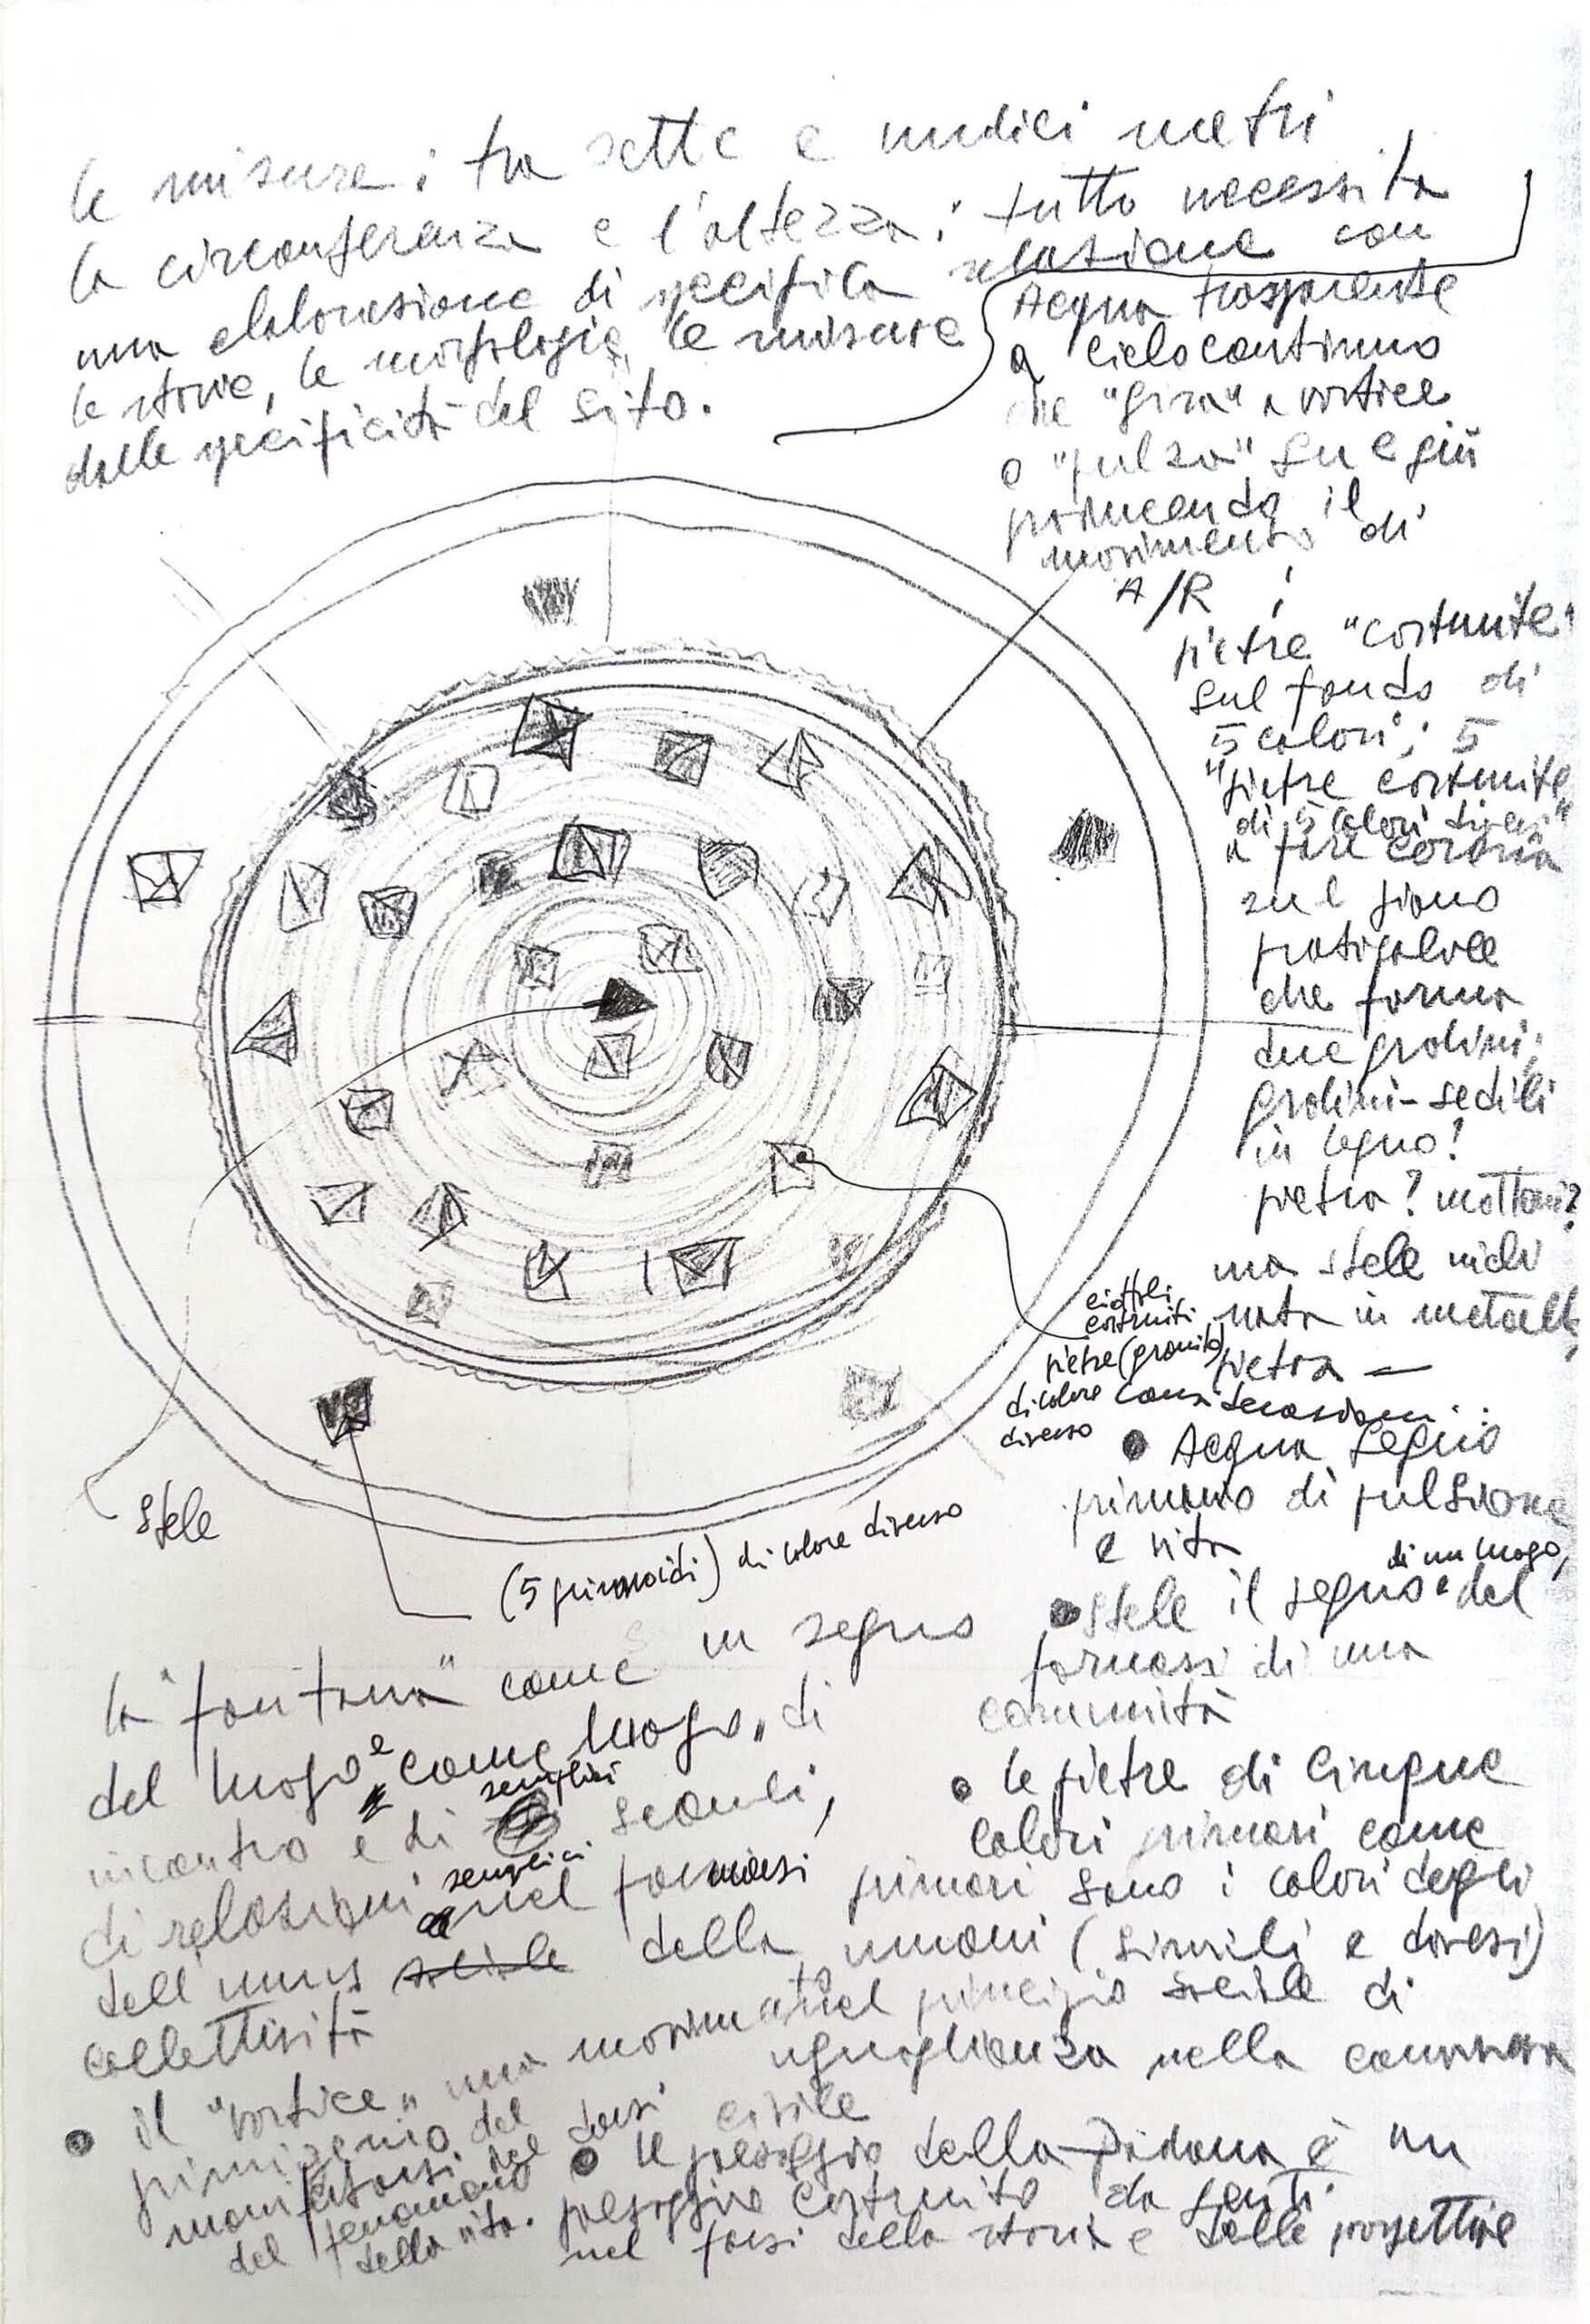 le misure: tra sette e undici metri
la circonferenza e l'altezza; tutto necessita
una elaborazione di specifica relazione con
le storie, le morfologie, le misure
dalle specificità del sito.
Acqua trasparente
a ciclo continuo
che "gira" a vortice
e "pulsa" su e giù
producendo il
movimento di
A/R ;
pietre "costruite"
sul fondo di
5 colori; 5
"pietre costruite
di 5 colori diversi"
a fare corona
sul piano
che forma
due gradini;
gradini-sedili
in legno?
pietra? mattoni?
ma stele
in metallo,
pietra —
ciottoli
costruiti
pietre (granito)
di colore
diverso
considerazioni..
Stele
(5 piramoidi) di colore diverso
• Acqua segno
primario di pulsione
e vita
• Stele il segno di un luogo, e del
formarsi di una
comunità
• le pietre di cinque
colori primari come
primari sono i colori degli
umani (simili e diversi)
nel principio sociale di
uguaglianza nella convivenza
civile
la "fontana" come un segno
del luogo e come "luogo" di
incontro e di semplici scambi,
di relazioni semplici nel formarsi
dell'umus sociale della
collettività
• il "vortice" movimento
primigenio del darsi
manifestarsi del
del fenomeno
della vita.
• Il paesaggio della Padana è un
paesaggio costruito da genti.
nel farsi della storia e delle progettive